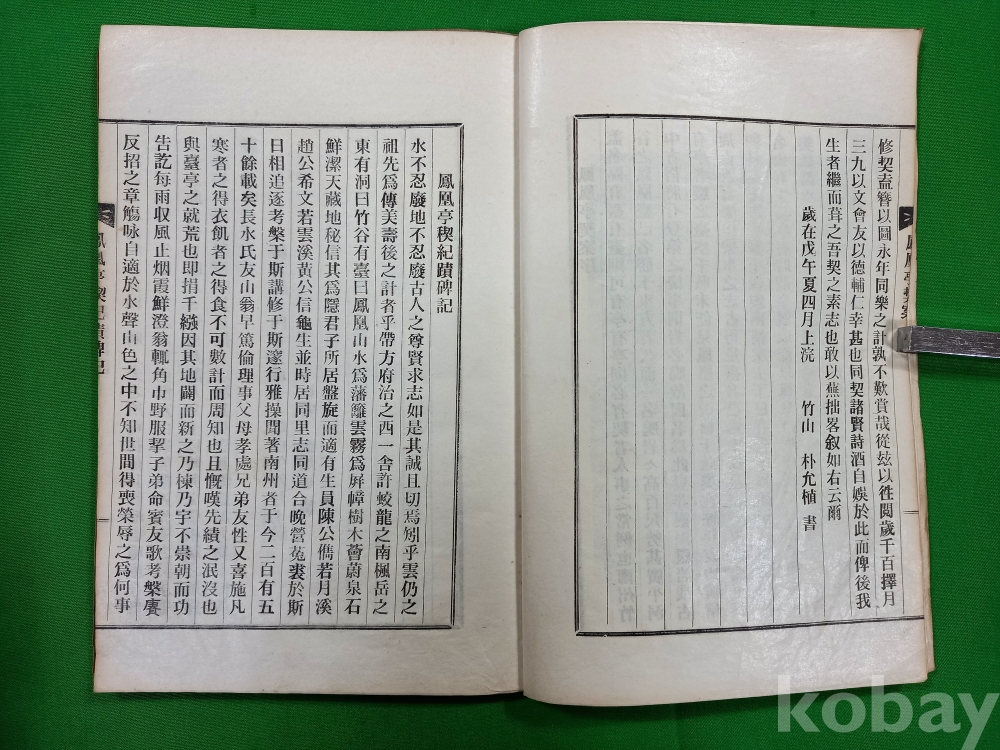 修契盍簪以圖永年同樂之計孰不歎賞哉從玆以徃閱歲千百擇月
三九以文會友以德輔仁幸甚也同契諸賢詩酒自娛於此而俾後我
生者繼而葺之吾契之素志也敢以蕪拙畧叙如右云爾
歲在戊午夏四月上浣 竹山 朴允植 書
鳳凰亭稧紀蹟碑記
水不忍廢地不忍廢古人之尊賢求志如是其誠且切焉矧乎雲仍之
祖先爲傳美壽後之計者乎帶方府治之西一舍許蛟龍之南楓岳之
東有洞曰竹谷有臺曰鳳凰山水爲藩籬雲霧爲屛幛樹木薈蔚泉石
鮮潔天藏地秘信其爲隱君子所居盤旋而適有生員陳公儁若月溪
趙公希文若雲溪黃公信龜生並時居同里志同道合晚營菟裘於斯
日相追逐考槃于斯講修于斯邃行雅操聞著南州者于今二百有五
十餘載矣長水氏友山翁早篤倫理事父母孝處兄弟友性又喜施凡
寒者之得衣飢者之得食不可數計而周知也且慨嘆先績之泯沒也
與臺亭之就荒也即捐千繦因其地闢而新之乃棟乃宇不崇朝而功
告訖每雨収風止烟霞鮮澄翁輒角巾野服挈子弟命賓友歌考槃賡
反招之章觴咏自適於水聲山色之中不知世間得喪榮辱之爲何事
鳳凰亭稧紀蹟碑記
kobay